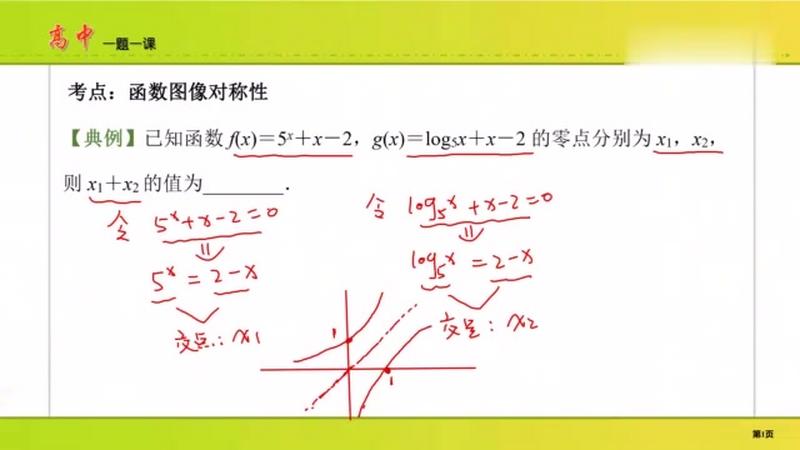 高中 一题一课
考点：函数图像对称性
【典例】已知函数 f(x)=5ˣ+x−2，g(x)=log₅x+x−2 的零点分别为 x₁，x₂，
则 x₁+x₂ 的值为________．
令 5ˣ+x-2=0 令 log₅x+x-2=0
5ˣ=2-x log₅x=2-x
交点：x₁ 交点：x₂
1
1
第1页